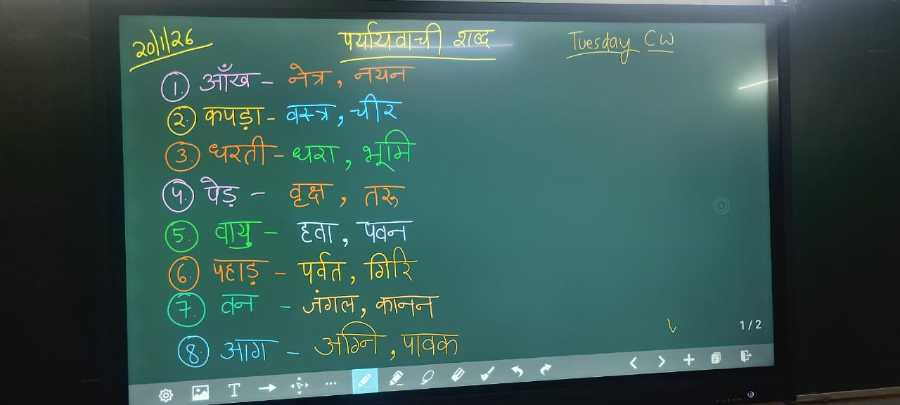 20/1/26 पर्यायवाची शब्द Tuesday CW
1. आँख - नेत्र, नयन
2. कपड़ा - वस्त्र, चीर
3. धरती - धरा, भूमि
4. पेड़ - वृक्ष, तरू
5. वायु - हवा, पवन
6. पहाड़ - पर्वत, गिरि
7. वन - जंगल, कानन
8. आग - अग्नि, पावक
1/2
T